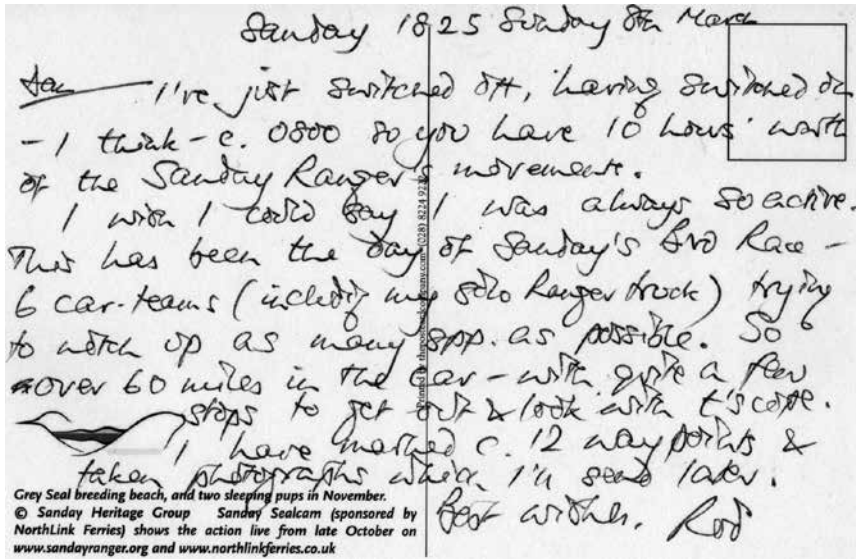 Sanday 1825 Sunday 8th March
I've just switched off, having switched on
- I think - c. 0800 so you have 10 hours' worth
of the Sanday Ranger's movements.
I wish I could say I was always so active.
This has been the day of Sanday's Bird Race -
6 car-teams (including my solo Ranger truck) trying
to notch up as many spp. as possible. So
over 60 miles in the car - with quite a few
stops to get out & look with t'scope.
I have marked c. 12 waypoints &
taken photographs which I'll send later.
Best wishes, Rod
Grey Seal breeding beach, and two sleeping pups in November.
© Sanday Heritage Group Sanday Sealcam (sponsored by
NorthLink Ferries) shows the action live from late October on
www.sandayranger.org and www.northlinkferries.co.uk